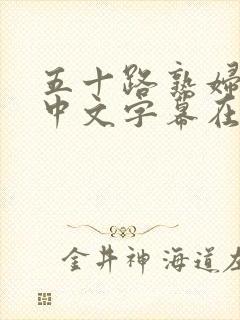 五十路熟婦
中文字幕在
金井神海道左